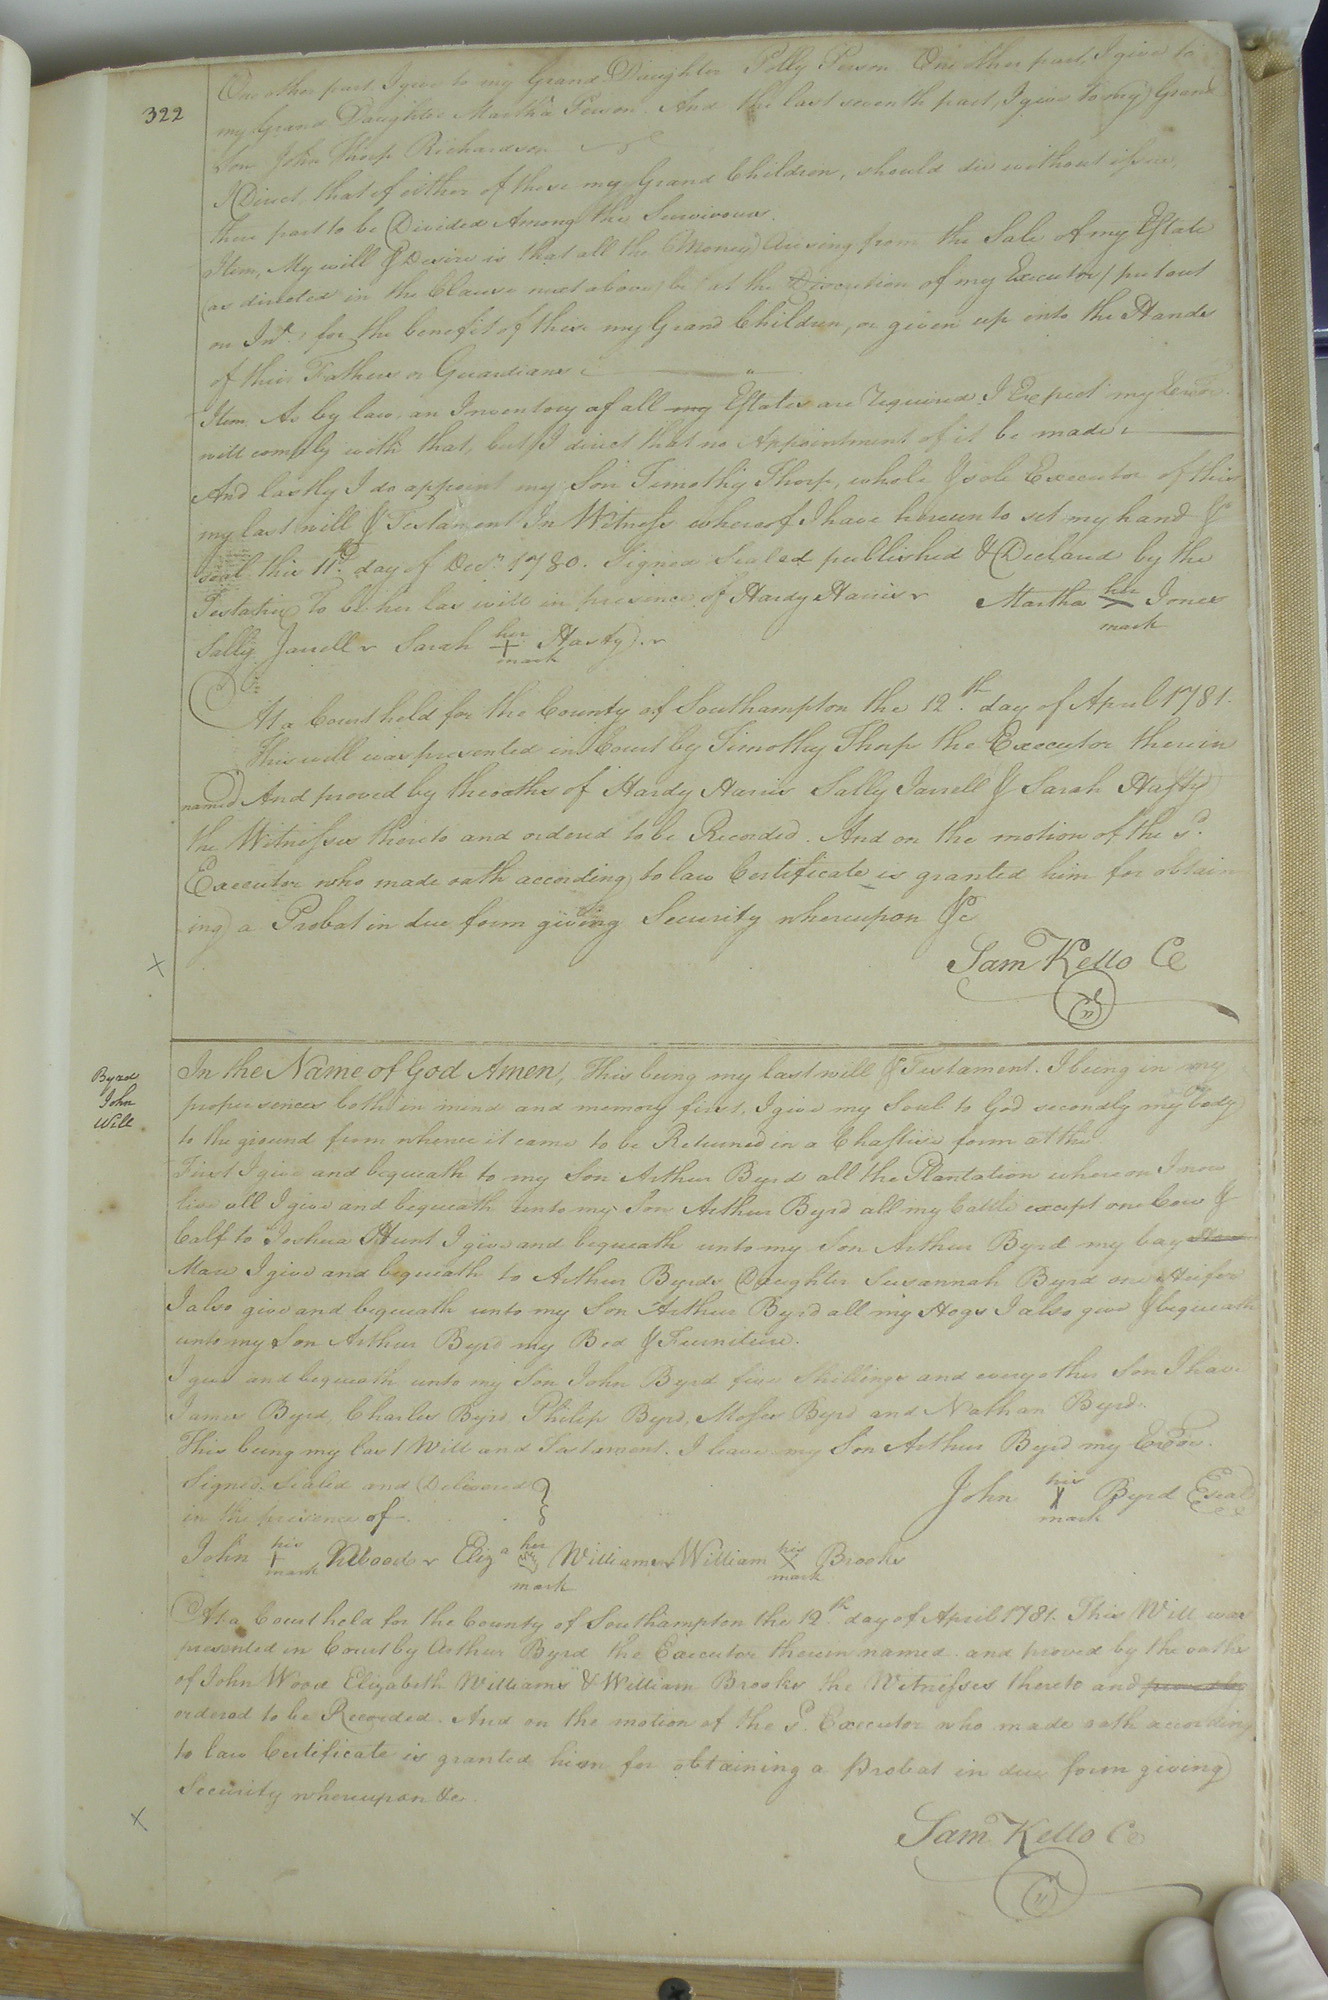 322
One other part I give to my Grand Daughter Polly Person One other part, I give to
my Grand Daughter Martha Person. And the last seventh part, I give to my Grand
Son John Thorp Richardson
I Direct, that if either of these my Grand Children, should die without issue,
there part to be Divided Among the Survivours.
Item, My will & Desire is that all the Money Arising from the Sale of my Estate
(as directed in the Clause next above) be (at the Discretion of my Executor) put out
on Int., for the benefit of these my Grand Children, or given up into the Hands
of their Fathers or Guardians
Item, As by law, an Inventory of all my Estates are required I Expect my Exor.
will comply with that, but I direct that no Appointment of it be made
And lastly I do appoint my Son Timothy Thorp, whole & sole Executor of this
my last will & Testament In Witness whereof I have hereunto set my hand &
seal this 11th day of Decr. 1780. Signed Sealed published & Declared by the
Testatrix To be her las will in presence of Hardy Harris Martha her Jones
mark
Sally Jarrell Sarah her mark Hasty
At a Court held for the County of Southampton the 12.th day of April 1781.
This will was presented in Court by Timothy Thorp the Executor therein
named And proved by the oaths of Hardy Harris Sally Jarrell & Sarah Hasty
the Witnesses thereto and ordered to be Recorded. And on the motion of the sd.
Executor who made oath according to law Certificate is granted him for obtain
ing a Probat in due form giving Security whereupon &c
Sam Kello Cc
Byrd
John
Will
In the Name of God Amen, This being my last will & Testament. I being in my
proper sences both in mind and memory first, I give my Soul to God secondly my body
to the ground from whence it came to be Returned in a form at the
First I give and bequeath to my Son Arthur Byrd all the Plantation whereon I now
live all I give and bequeath unto my Son Arthur Byrd all my Cattle except one Cow &
Calf to Joshua Hunt I give and bequeath unto my Son Arthur Byrd my bay
Mare I give and bequeath to Arthur Byrds Daughter Susannah Byrd one Heifer
I also give and bequeath unto my Son Arthur Byrd all my Hogs I also give & bequeath
unto my Son Arthur Byrd my Bed & Furniture.
I give and bequeath unto my Son John Byrd five Shillings and every other Son I have
James Byrd, Charles Byrd, Philip Byrd, Moses Byrd and Nathan Byrd.
This being my last Will and Testament. I leave my Son Arthur Byrd my Exor.
Signed Sealed and Delivered
in the presence of
John his mark Byrd Seal
John his mark Wood Eliza her mark Williams William his mark Brooks
At a Court held for the County of Southampton the 12.th day of April 1781. This Will was
presented in Court by Arthur Byrd the Executor therein named. and proved by the oaths
of John Wood Elizabeth Williams & William Brooks the Witnesses thereto and proved by
ordered to be Recorded. And on the motion of the sd. Executor who made oath according
to law Certificate is granted him for obtaining a Probat in due form giving
Security whereupon &c.
Sam Kello Cc